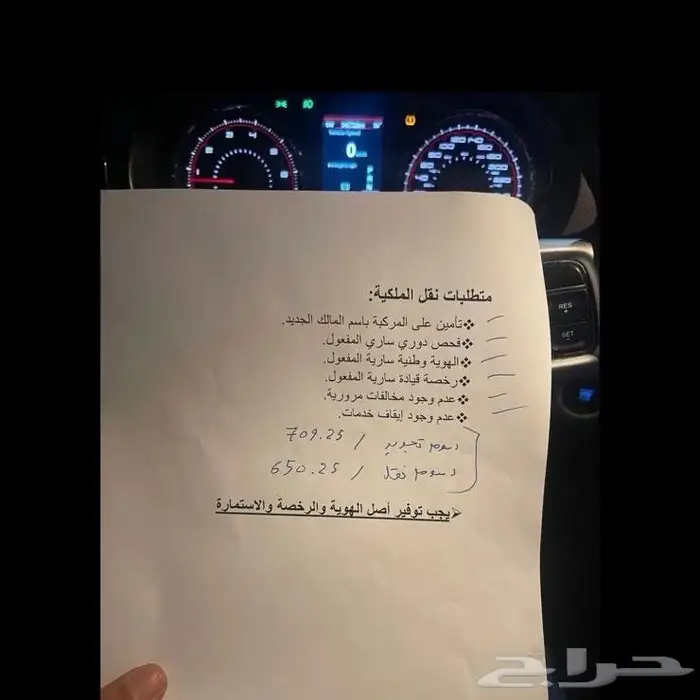 0
متطلبات نقل الملكية:
❖تأمين على المركبة باسم المالك الجديد.
❖فحص دوري ساري المفعول.
❖الهوية وطنية سارية المفعول.
❖رخصة قيادة سارية المفعول.
❖عدم وجود مخالفات مرورية.
❖عدم وجود إيقاف خدمات.
رسوم تجديد / 709.25
رسوم نقل / 650.25
يجب توفير أصل الهوية والرخصة والاستمارة
RES
+
SET
-
حراج